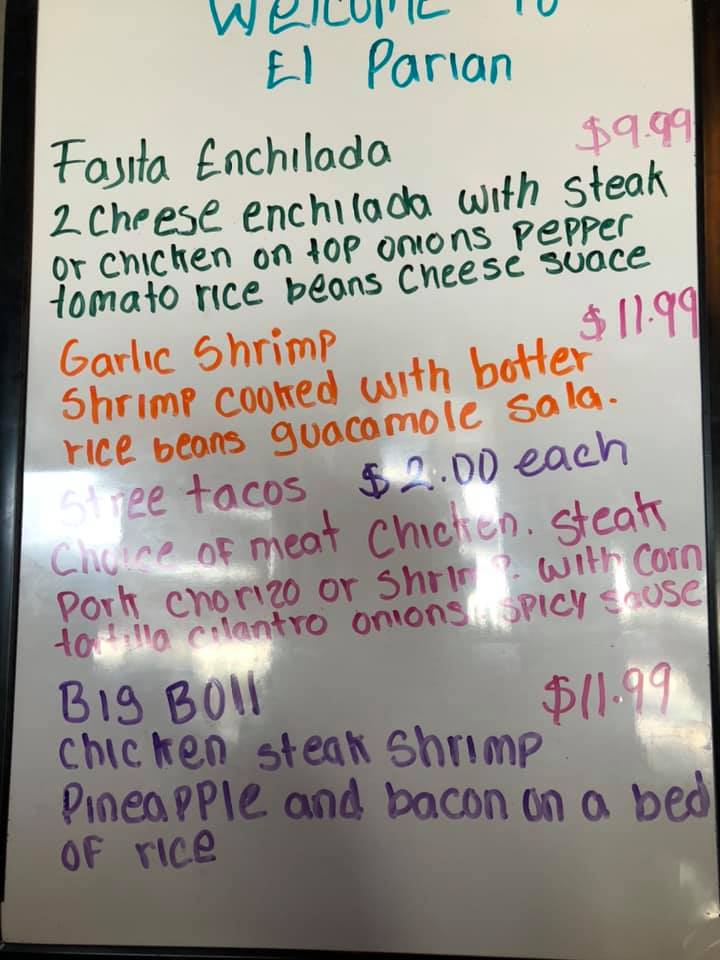 Welcome To
El Parian
Fajita Enchilada $9.99
2 cheese enchilada with steak
or chicken on top onions pepper
tomato rice beans cheese suace
Garlic Shrimp $11.99
Shrimp cooked with botter
rice beans guacamole sala.
Stree tacos $2.00 each
Choice of meat chicken. steak
Pork chorizo or shrimp. with corn
tortilla cilantro onions spicy sause
Big Boll $11.99
chicken steak shrimp
Pineapple and bacon on a bed
of rice